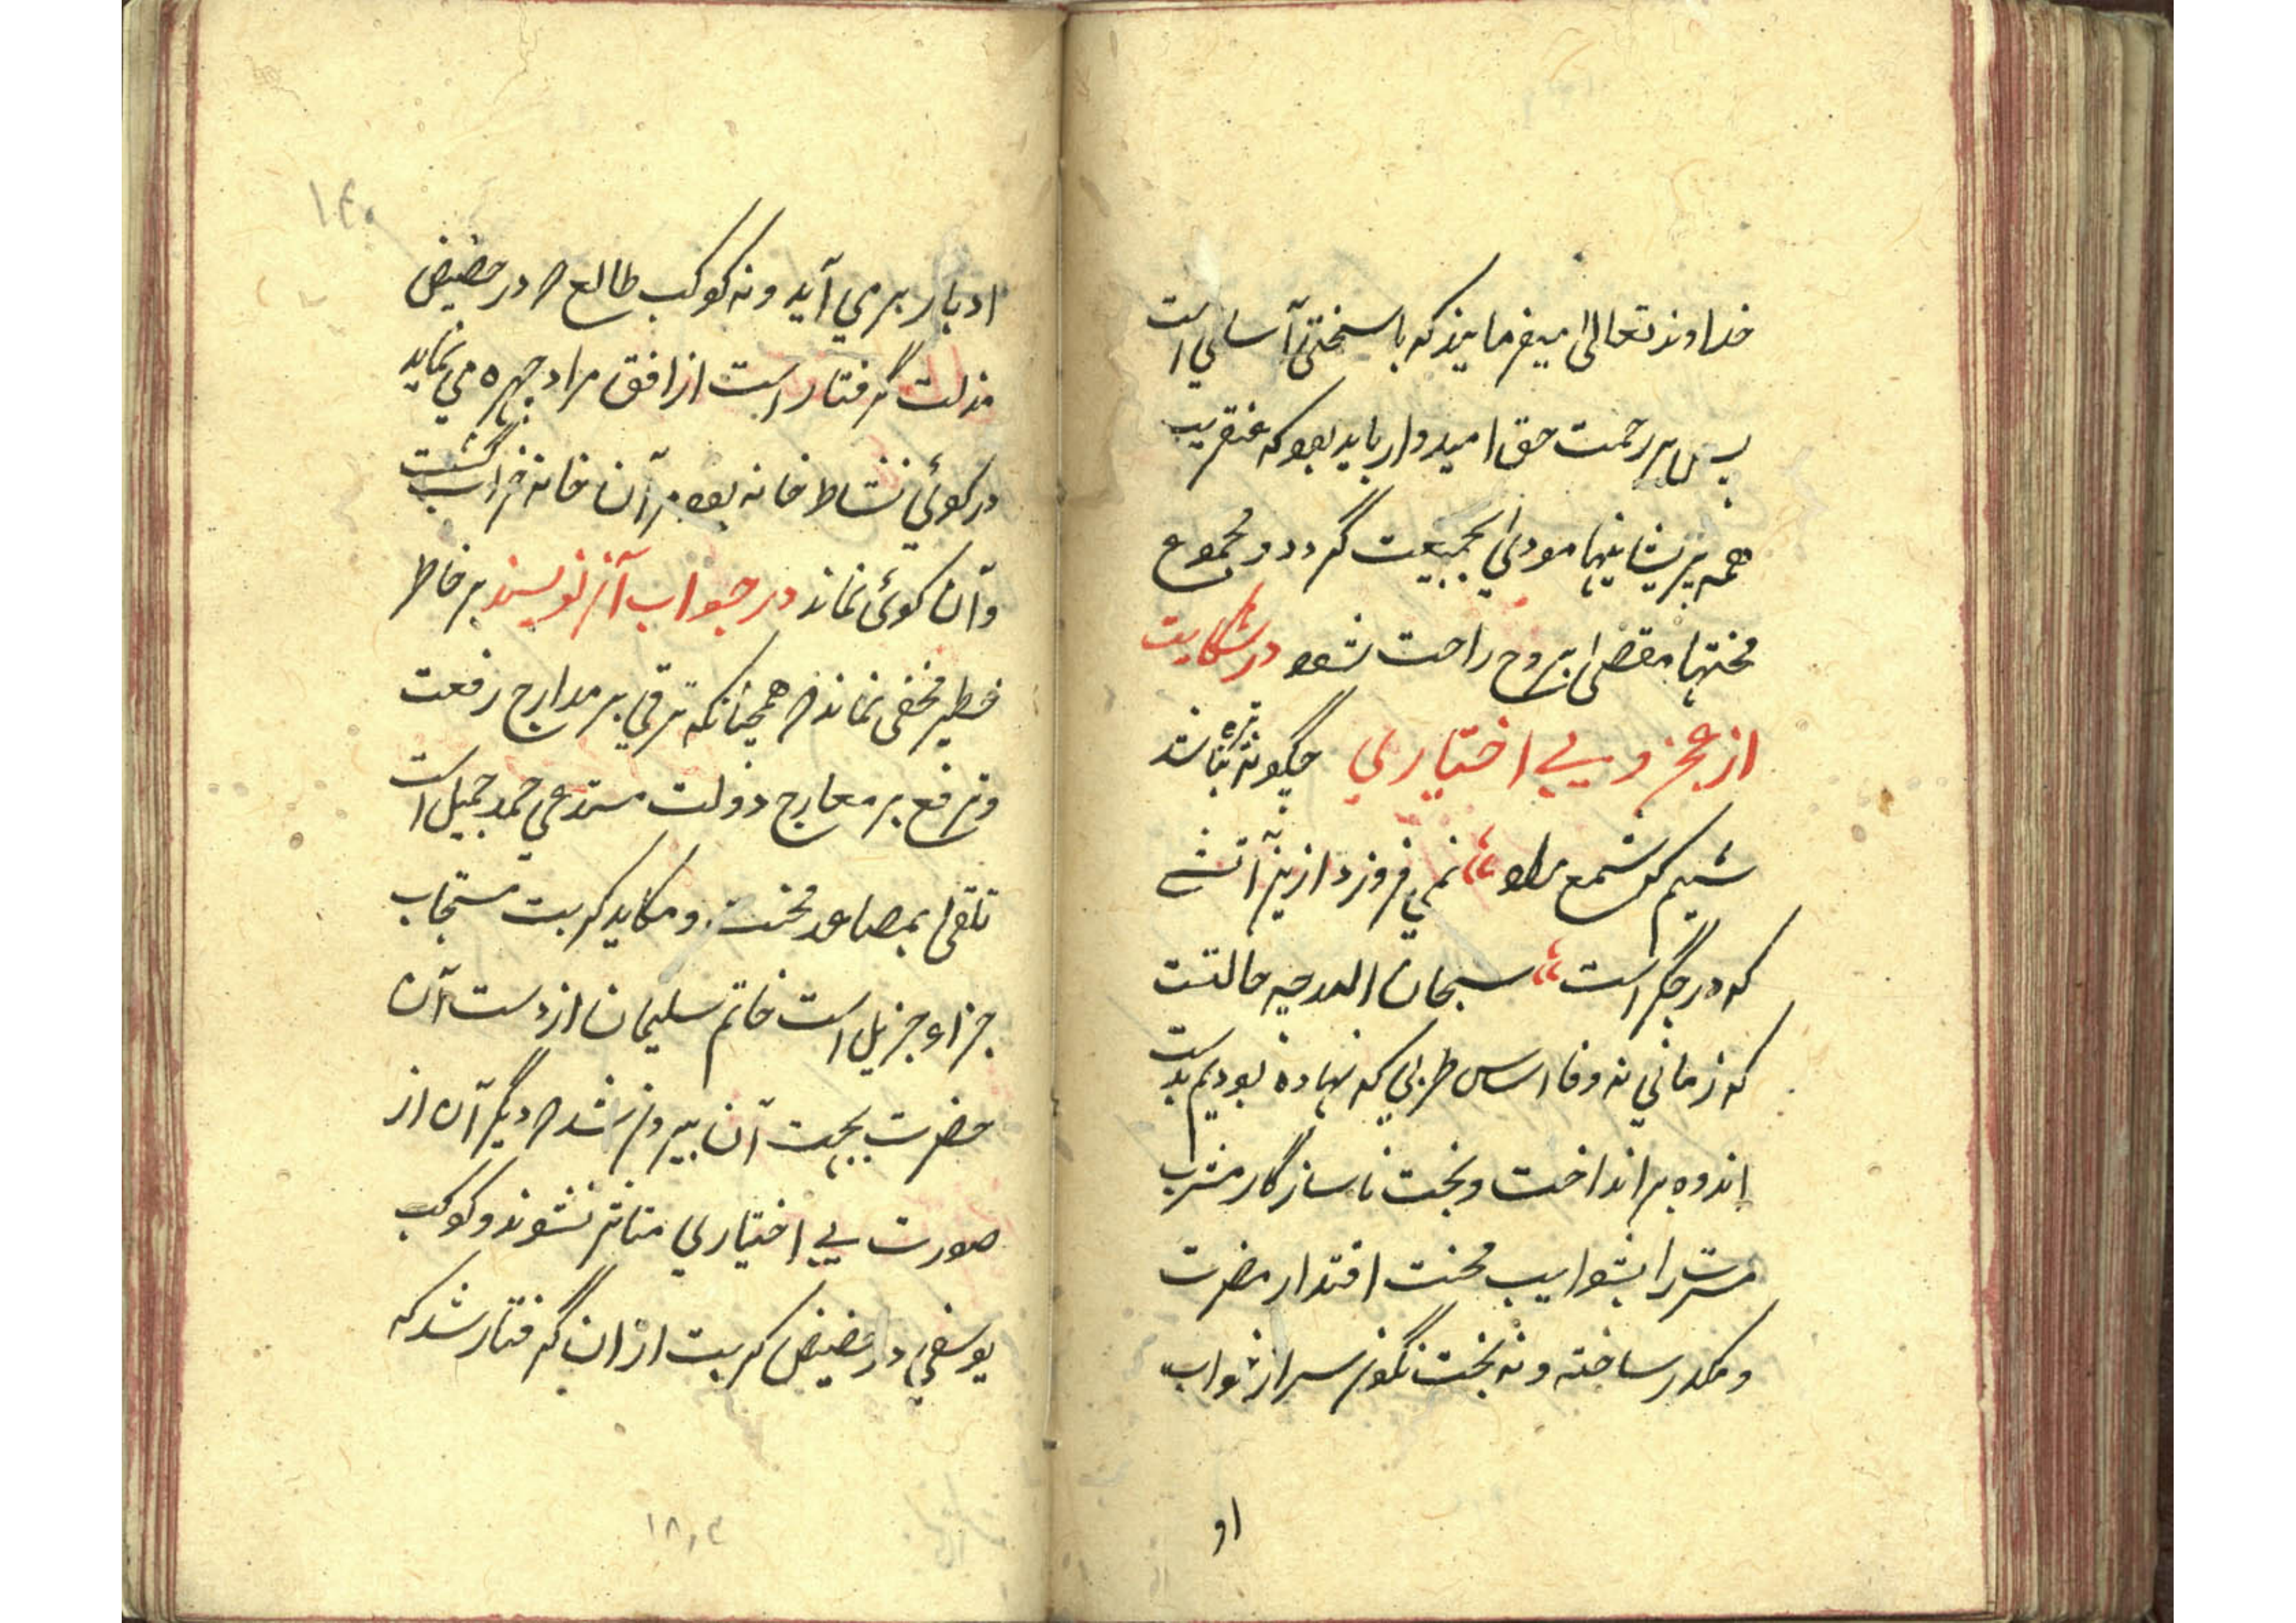 خداوند تعالی میفرمایند که با سختی آسانی است
پس بر رحمت حق امیدوار باید بود که عنقریب
همه پریشانیها مودای بجمعیت گردد و مجموع
محنتها مقضی بروح راحت شود در شکایت
از عجز و بی اختیاری چگونه تیره نباشد
شبم که شمع مراد نمی فروزد ازین آتشے
که در جگر است سبحان الله چه حالتست
که زمانی نه وفا اساس طربی که نهاده بودیم بدست
اندوه برانداخت و بخت ناسازگار مشرب
مسرت را بشوایب محنت اقتدار مضرت
و مکدر ساخته و نه بخت نگون سر از ثواب
او
۱۴۰
ادبار بر می آید و نه کوکب طالع که در حضیض
مذلت گرفتار است از افق مراد چهره می نماید
در کوئی نشاط خانه بود مرا آن خانه خراب گشت
و آن کوئی نماند در جواب آن نویسند بر خاطر
خطیر مخفی نماند که همچنانکه ترقی بر مدارج رفعت
و ترفع بر معارج دولت مستدعی حمد جمیل است
تلقی بمصاعد محنت و مکاید کربت مستجاب
جزاء جزیل است خاتم سلیمان از دست آن
حضرت بجهت آن بیرون شد که دیگر آن از
صورت بی اختیاری متاثر نشوند و کوکب
یوسفی در حضیض کربت ازان گرفتار شد که